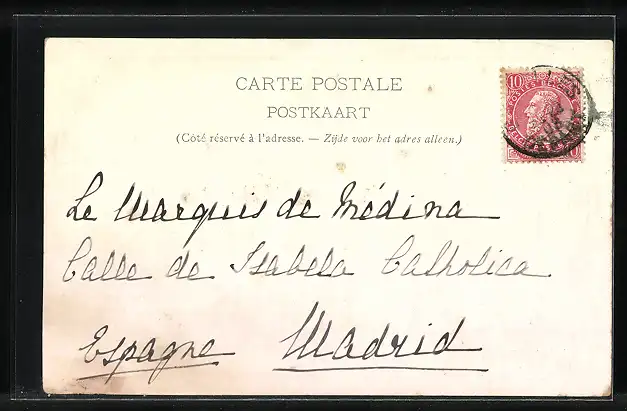 CARTE POSTALE
POSTKAART
(Côté réservé à l'adresse. — Zijde voor het adres alleen.)
10
Le Marquis de Médina
Calle de Isabela Catholica
Espagne Madrid